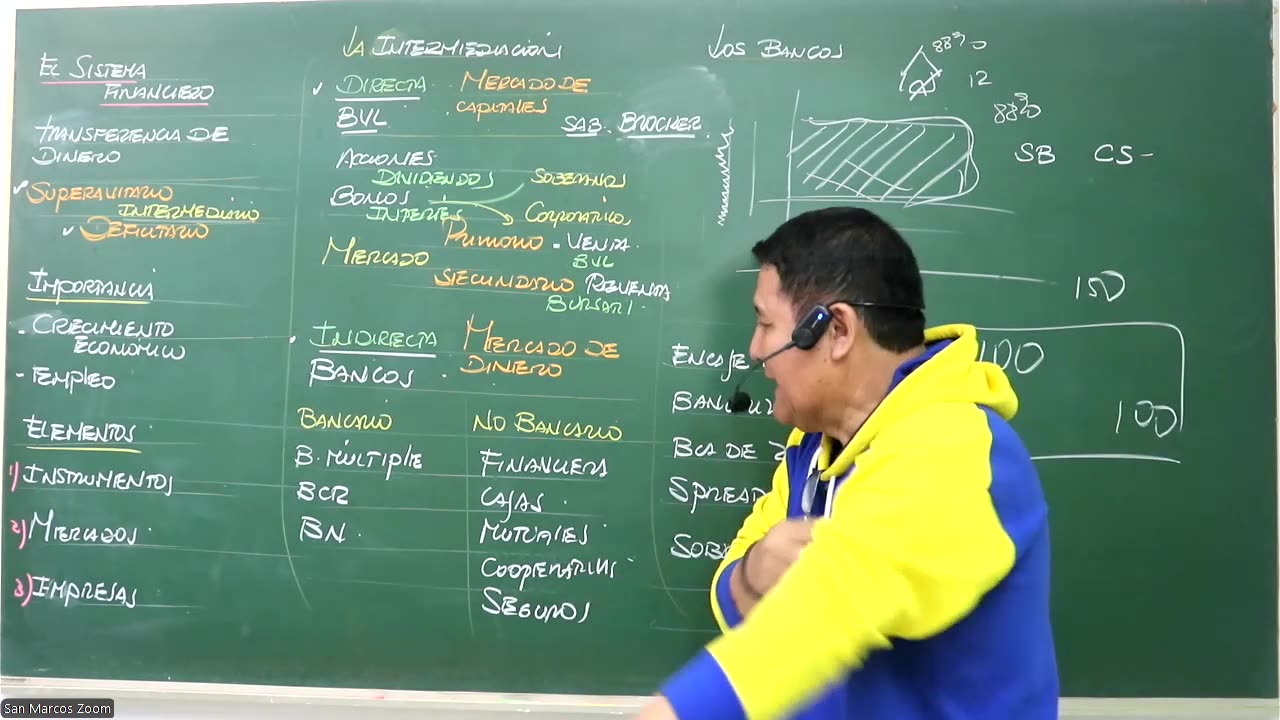 EL SISTEMA
FINANCIERO
TRANSFERENCIA DE
DINERO
SUPERAVITARIO
INTERMEDIARIO
DEFICITARIO
IMPORTANCIA
- CRECIMIENTO
ECONÓMICO
- EMPLEO
ELEMENTOS
1) INSTRUMENTOS
2) MERCADOS
3) EMPRESAS
LA INTERMEDIACIÓN
DIRECTA MERCADO DE
CAPITALES
BVL
SAB. BROCKER
ACCIONES
DIVIDENDOS SOBERANOS
BONOS
INTERES CORPORATIVOS
PRIMARIO - VENTA
BVL
MERCADO
SECUNDARIO REVENTA
BURSATI
INDIRECTA MERCADO DE
DINERO
BANCOS
BANCARIO NO BANCARIO
B. MÚLTIPLE FINANCIERA
BCR CAJAS
BN. MUTUALES
COOPERATIVAS
SEGUROS
LOS BANCOS
12
SB CS-
150
ENCAJE
100
100
BCA DE
SPREAD
SOB
San Marcos Zoom